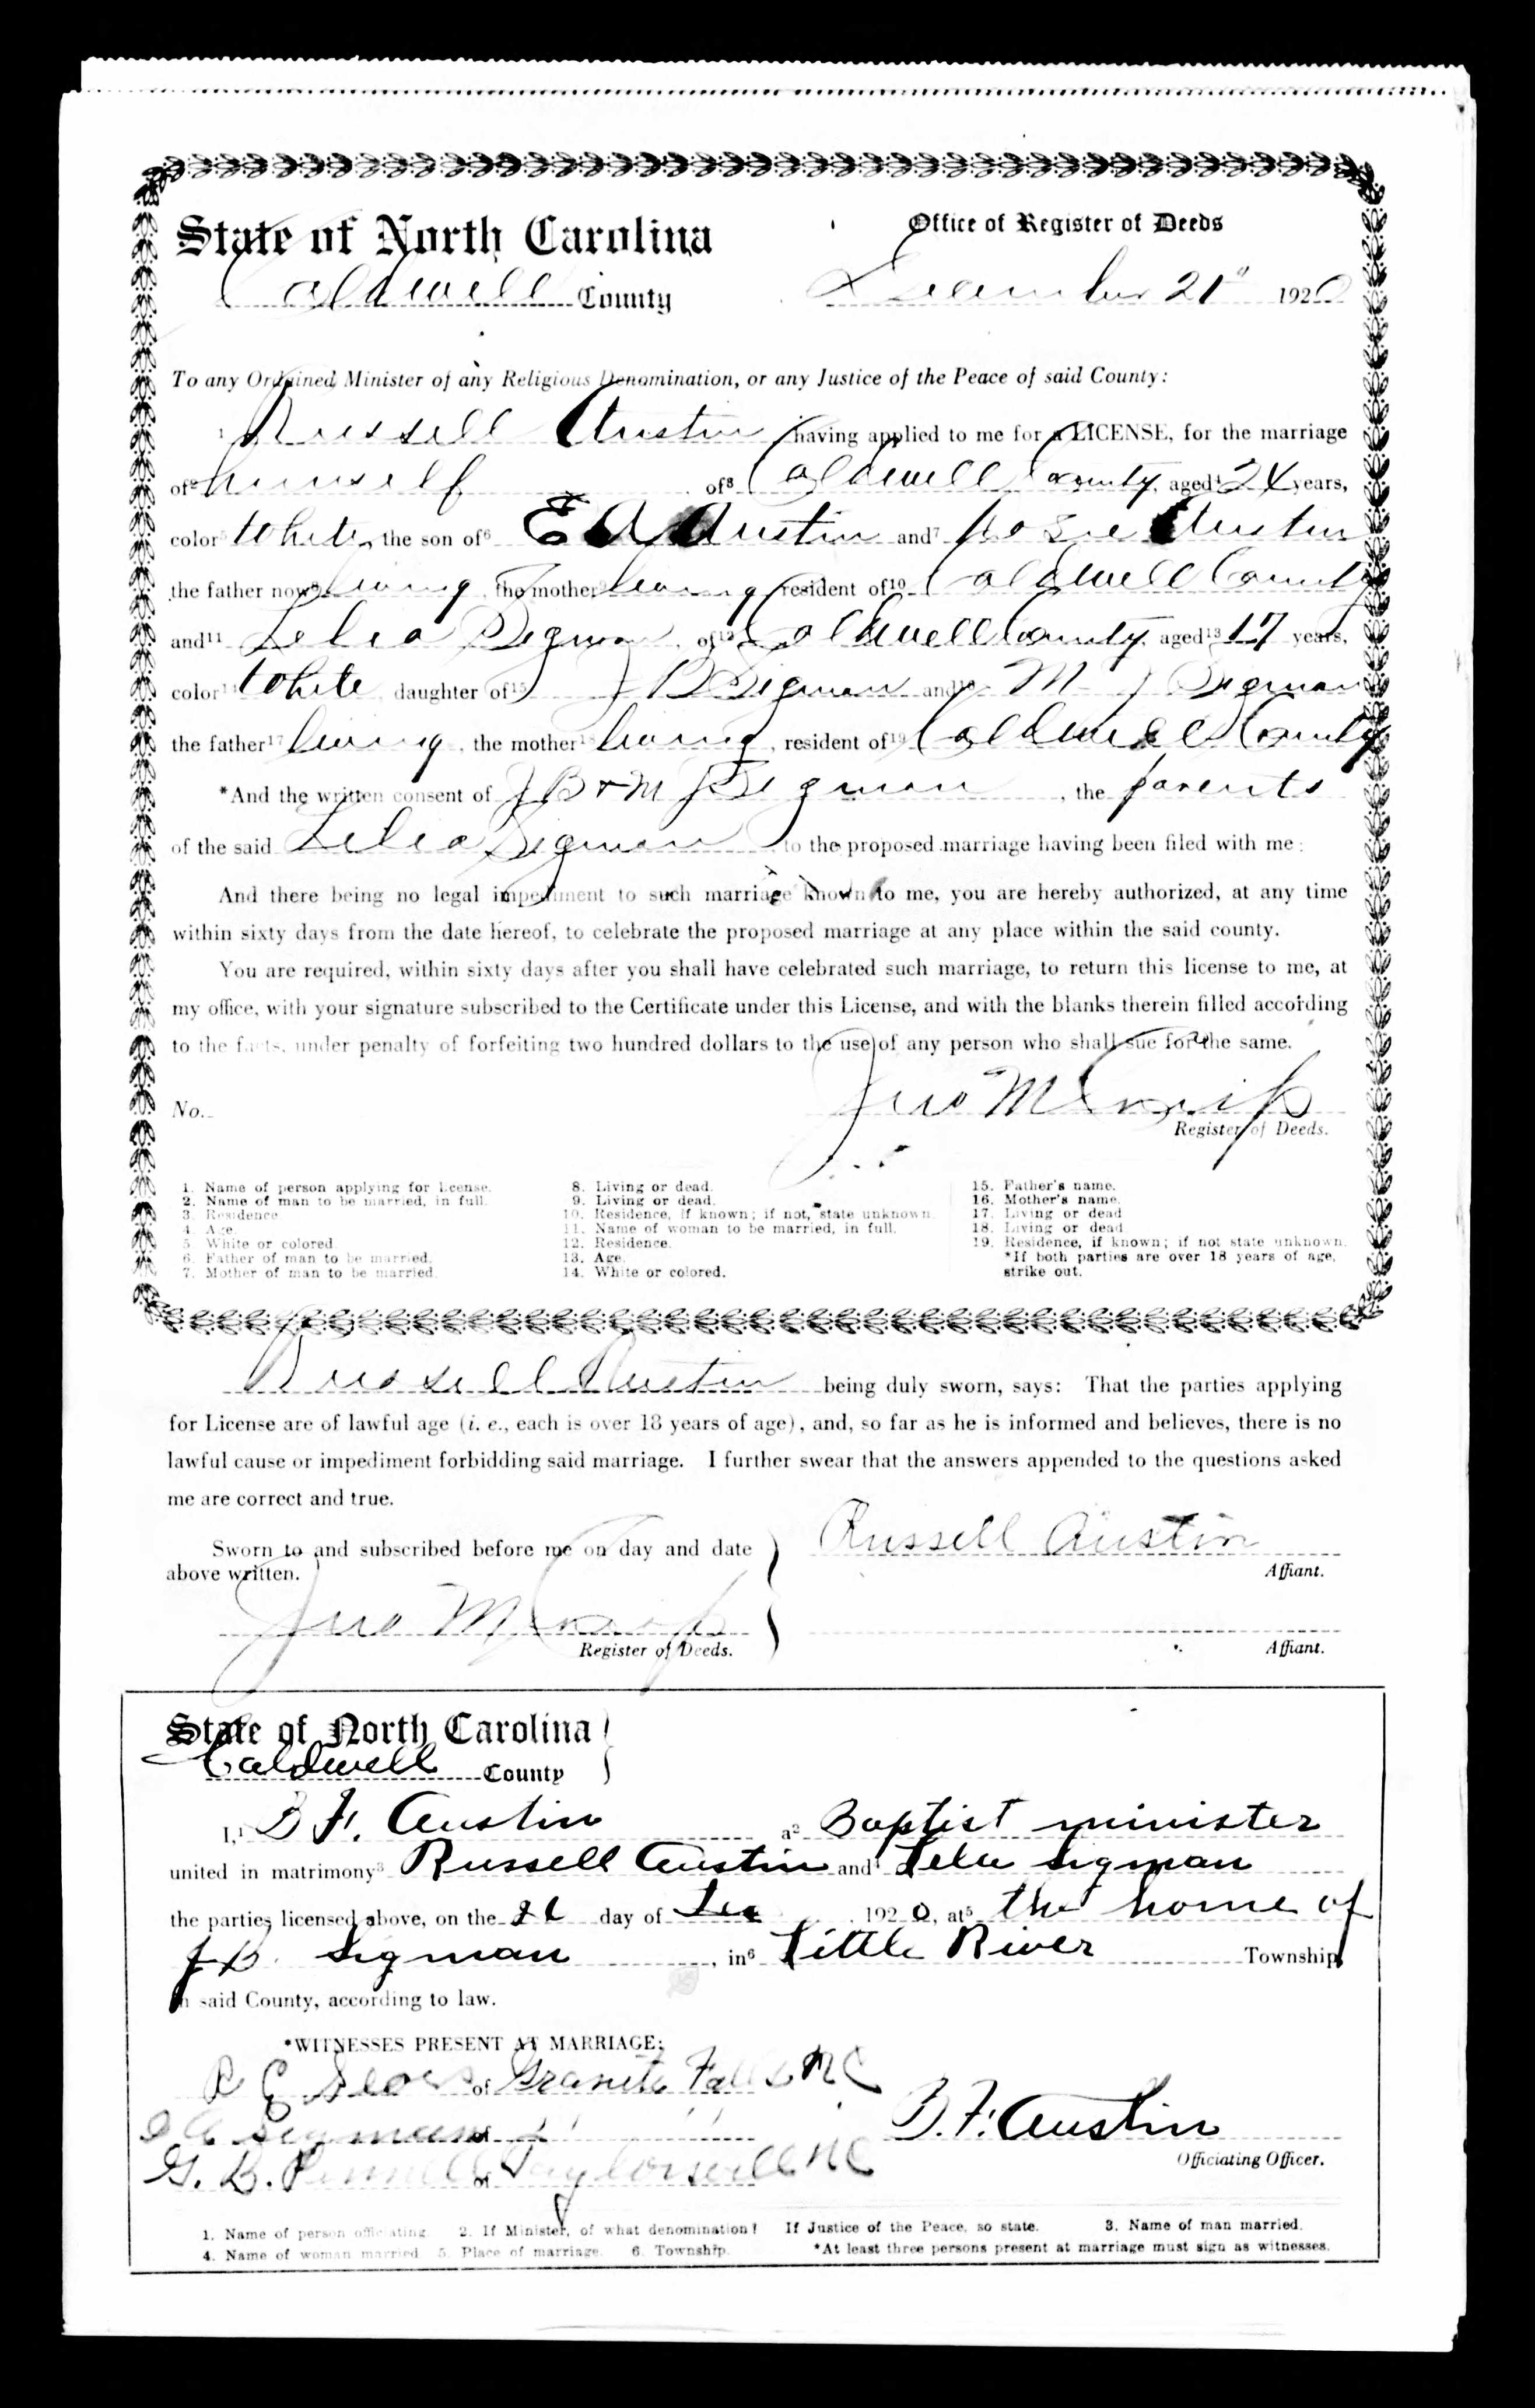 State of North Carolina
Office of Register of Deeds
Caldwell County
December 21" 1920
To any Ordained Minister of any Religious Denomination, or any Justice of the Peace of said County:
1 Russell Austin having applied to me for a LICENSE, for the marriage
of2 himself of3 Caldwell County, aged4 24 years,
color5 White, the son of6 E A Austin and7 Rosie Austin
the father now8 living, the mother9 living, resident of10 Caldwell County
and11 Lelia Sigmon, of12 Caldwell County, aged13 17 years,
color14 White daughter of15 J B Sigmon and16 M J Sigmon
the father17 living, the mother18 living, resident of19 Caldwell County
*And the written consent of J B & M J Sigmon, the parents
of the said Lelia Sigmon to the proposed marriage having been filed with me:
And there being no legal impediment to such marriage known to me, you are hereby authorized, at any time
within sixty days from the date hereof, to celebrate the proposed marriage at any place within the said county.
You are required, within sixty days after you shall have celebrated such marriage, to return this license to me, at
my office, with your signature subscribed to the Certificate under this License, and with the blanks therein filled according
to the facts, under penalty of forfeiting two hundred dollars to the use of any person who shall sue for the same.
No.
Jno M Crisp
Register of Deeds.
1. Name of person applying for license.
2. Name of man to be married, in full.
3. Residence
4. Age.
5. White or colored.
6. Father of man to be married.
7. Mother of man to be married.
8. Living or dead.
9. Living or dead.
10. Residence, if known; if not, state unknown.
11. Name of woman to be married, in full.
12. Residence.
13. Age.
14. White or colored.
15. Father's name.
16. Mother's name.
17. Living or dead
18. Living or dead
19. Residence, if known; if not state unknown.
*If both parties are over 18 years of age,
strike out.
Russell Austin being duly sworn, says: That the parties applying
for License are of lawful age (i. e., each is over 18 years of age), and, so far as he is informed and believes, there is no
lawful cause or impediment forbidding said marriage. I further swear that the answers appended to the questions asked
me are correct and true.
Sworn to and subscribed before me on day and date
above written.
Russell Austin
Affiant.
Jno M Crisp
Register of Deeds.
Affiant.
State of North Carolina
Caldwell County
I,1 B F. Austin a2 Baptist minister
united in matrimony3 Russell Austin and4 Lelia Sigman
the parties licensed above, on the 26 day of Dec 1920, at5 the home of
J B. Sigman, in6 Little River Township
in said County, according to law.
*WITNESSES PRESENT AT MARRIAGE:
R E of Granite Falls NC
Sigman of " "
G. B. Pennell of Taylorsville NC
B. F. Austin
Officiating Officer.
1. Name of person officiating. 2. If Minister, of what denomination? If Justice of the Peace, so state. 3. Name of man married.
4. Name of woman married 5. Place of marriage. 6. Township.
*At least three persons present at marriage must sign as witnesses.